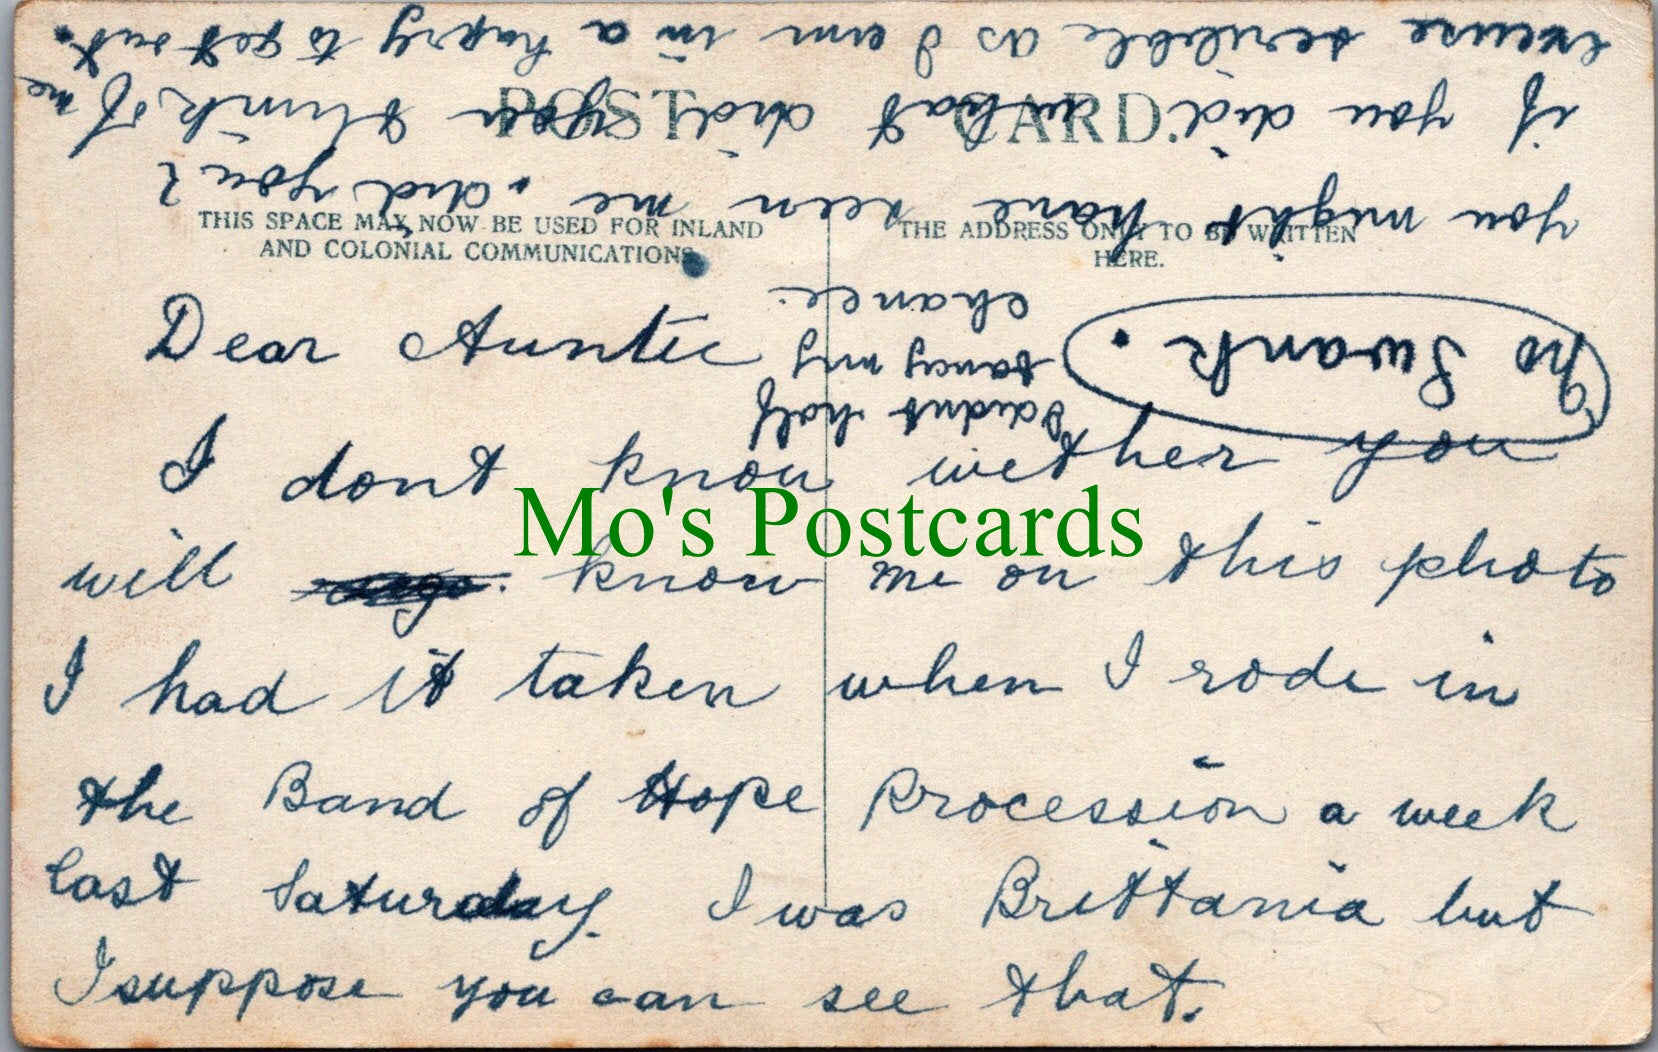 POST CARD.
THIS SPACE MAY NOW BE USED FOR INLAND
AND COLONIAL COMMUNICATIONS.
THE ADDRESS ONLY TO BE WRITTEN
HERE.
Dear Auntie
I dont know wether you
will know me on this photo
I had it taken when I rode in
the Band of Hope Procession a week
last Saturday. I was Brittania but
I suppose you can see that.
No Swank.
I didnt half
fancy my
chance.
you might have seen me. did you?
if you did what did you think of me
excuse scribble as I am in a hurry to get out.
Mo's Postcards